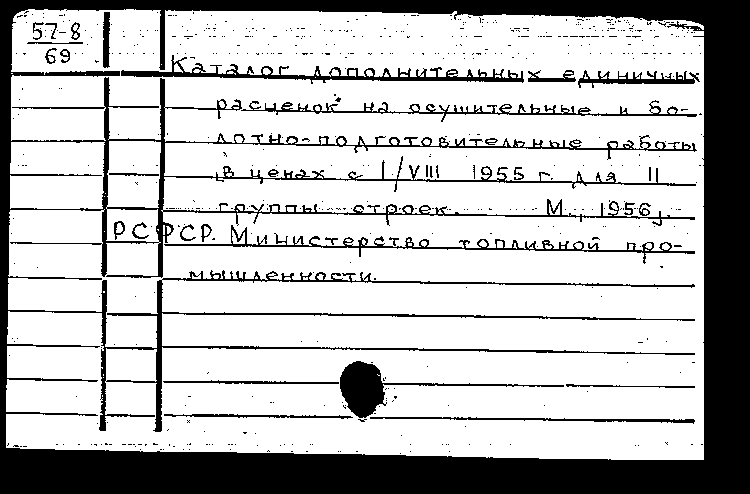 57-8
69
Каталог дополнительных единичных
расценок на осушительные и бо-
лотно-подготовительные работы
в ценах с I/VIII 1955 г. для II
группы строек. М., 1956г.
РСФСР. Министерство топливной про-
мышленности.